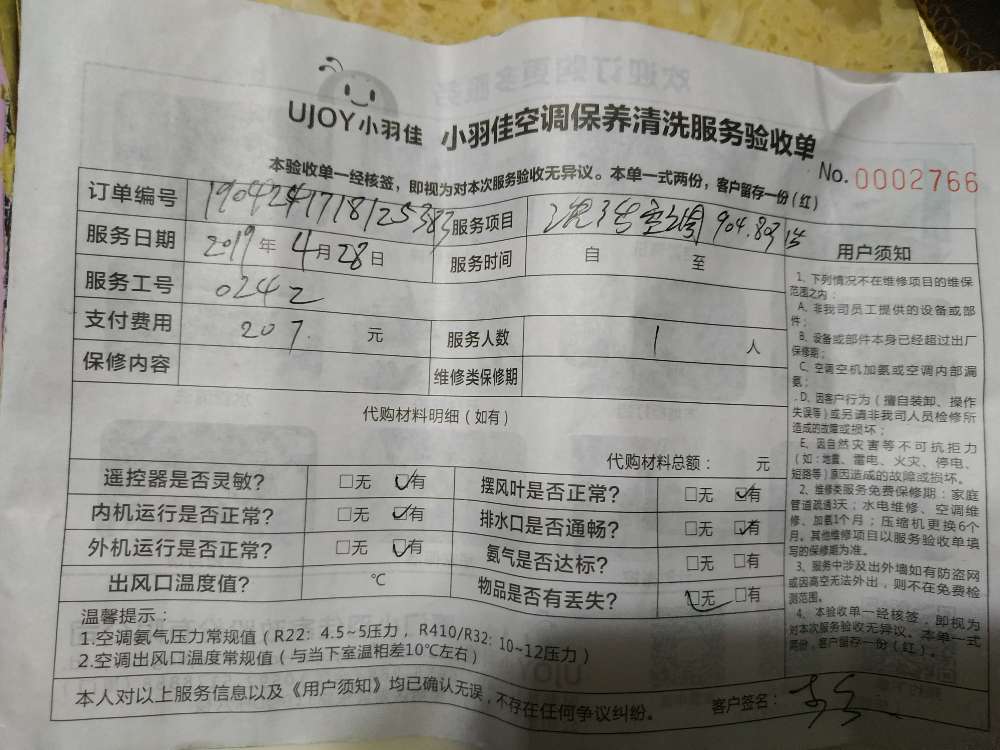 UJOY小羽佳 小羽佳空调保养清洗服务验收单
No. 0002766
本验收单一经核签，即视为对本次服务验收无异议。本单一式两份，客户留存一份（红）
订单编号 服务项目 空调 904.803
服务日期 2019年4月28日 服务时间 自 至
服务工号 0242
支付费用 207. 元 服务人数 1 人
保修内容 维修类保修期
代购材料明细（如有）
代购材料总额： 元
遥控器是否灵敏? □无 □有 摆风叶是否正常? □无 □有
内机运行是否正常? □无 □有 排水口是否通畅? □无 □有
外机运行是否正常? □无 □有 氨气是否达标? □无 □有
出风口温度值? ℃ 物品是否有丢失? □无 □有
温馨提示：
1.空调氨气压力常规值（R22: 4.5~5压力，R410/R32: 10~12压力）
2.空调出风口温度常规值（与当下室温相差10℃左右）
本人对以上服务信息以及《用户须知》均已确认无误，不存在任何争议纠纷。 客户签名：
用户须知
1、下列情况不在维修项目的维保
范围之内：
A、非我司员工提供的设备或部
件；
B、设备或部件本身已经超过出厂
保修期；
C、空调空机加氨或空调内部漏
氨；
D、因客户行为（擅自装卸、操作
失误等）或另请非我司人员检修所
造成的故障或损坏；
E、因自然灾害等不可抗拒力
（如:地震、雷电、火灾、停电、
短路等）原因造成的故障或损坏。
2、维修类服务免费保修期：家庭
管道疏通3天；水电维修、空调维
修、加氨1个月；压缩机更换6个
月。其他维修项目以服务验收单填
写的保修期为准。
3、服务中涉及出外墙如有防盗网
或因高空无法外出，则不在免费检
测范围。
4、本验收单一经核签，即视为
对本次服务验收无异议。本单一式
两份，客户留存一份（红）。